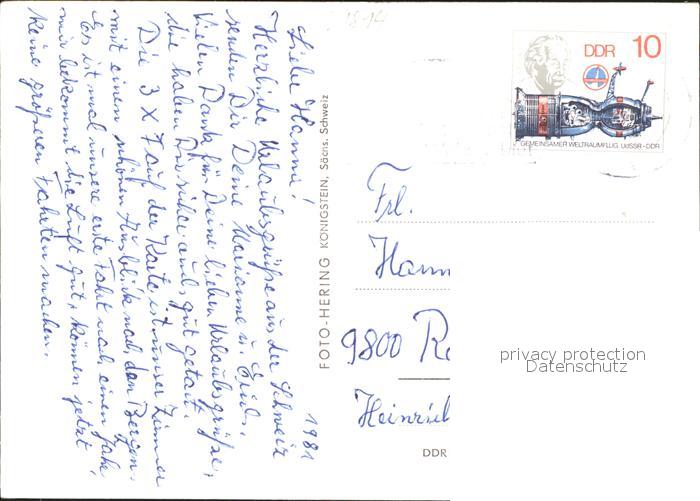 1981
Liebe Hanna!
Herzliche Urlaubsgrüße aus der Schweiz
senden Dir Deine Marianne u.
Vielen Dank für Deine lieben Urlaubsgrüße,
die haben Dir sicher auch gut getan.
Die 3 X 7 auf der Karte ist unser Zimmer
mit einem schönen Ausblick nach den Bergen.
Es ist mal unsere erste Fahrt nach einem Jahr,
mir bekommt die Luft gut, können jetzt
keine größeren Fahrten machen.
FOTO-HERING KÖNIGSTEIN, Sächs. Schweiz
DDR 10
GEMEINSAMER WELTRAUMFLUG UdSSR-DDR
Frl.
Hann
9800 Re
Heinrich
DDR
privacy protection
Datenschutz